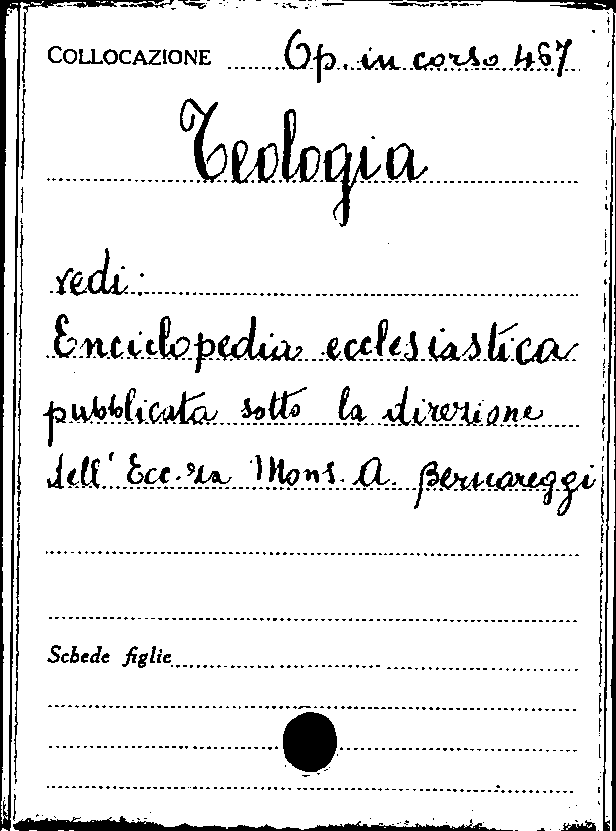 COLLOCAZIONE Op. in corso 467
Teologia
vedi:
Enciclopedia ecclesiastica
pubblicata sotto la direzione
dell'Ecc.za Mons. A. Bernareggi
Schede figlie